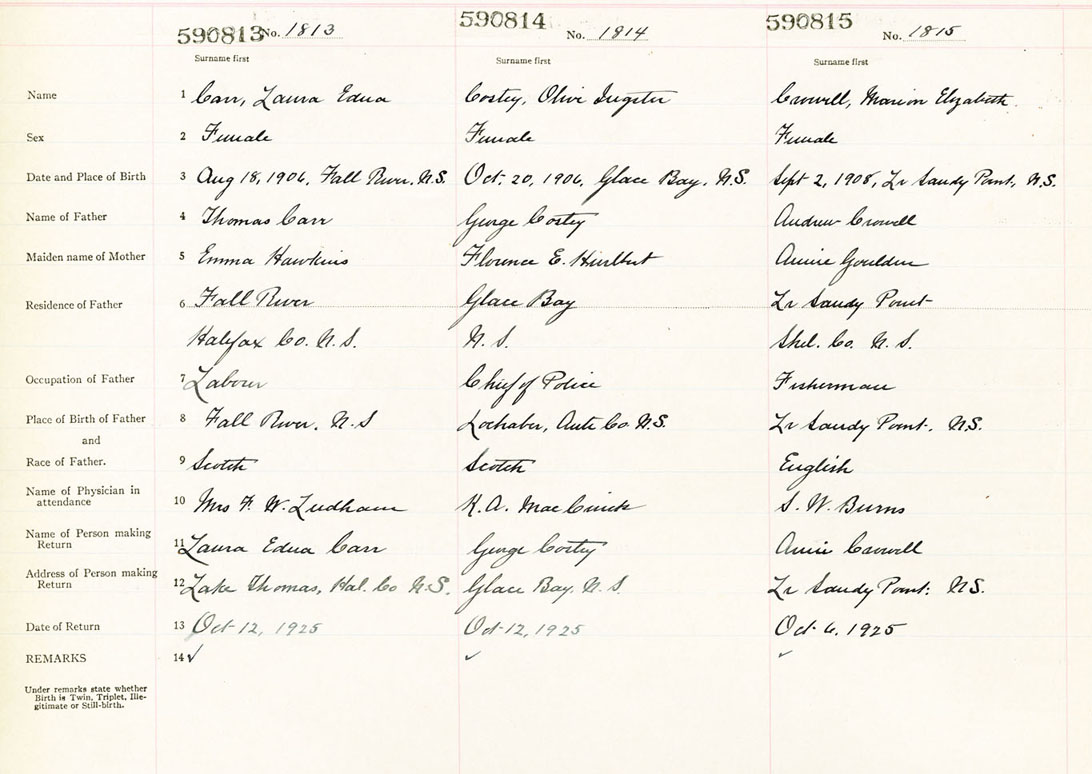 590813 No. 1813 590814 No. 1814 590815 No. 1815
Surname first Surname first Surname first
Name 1 Carr, Laura Edna Costey, Olive Crowell, Marion Elizabeth
Sex 2 Female Female Female
Date and Place of Birth 3 Aug 18, 1906, Fall River, N.S. Oct. 20, 1906, Glace Bay, N.S. Sept 2, 1908, Lr Sandy Point, N.S.
Name of Father 4 Thomas Carr George Costey Andrew Crowell
Maiden name of Mother 5 Emma Hawkins Florence E. Hurlbert Annie Goulden
Residence of Father 6 Fall River Glace Bay Lr Sandy Point
Halifax Co. N.S. N.S. Shel. Co. N.S.
Occupation of Father 7 Labour Chief of Police Fisherman
Place of Birth of Father 8 Fall River, N.S Lochaber, Ante Co N.S. Lr Sandy Point, N.S.
and
Race of Father. 9 Scotch Scotch English
Name of Physician in
attendance 10 Mrs F. W. K.A. S. W. Burns
Name of Person making
Return 11 Laura Edna Carr George Costey Annie Crowell
Address of Person making
Return 12 Lake Thomas, Hal. Co N.S. Glace Bay, N.S. Lr Sandy Point. NS.
Date of Return 13 Oct 12, 1925 Oct 12, 1925 Oct 6, 1925
REMARKS 14 ✓ ✓ ✓
Under remarks state whether
Birth is Twin, Triplet, Ille-
gitimate or Still-birth.